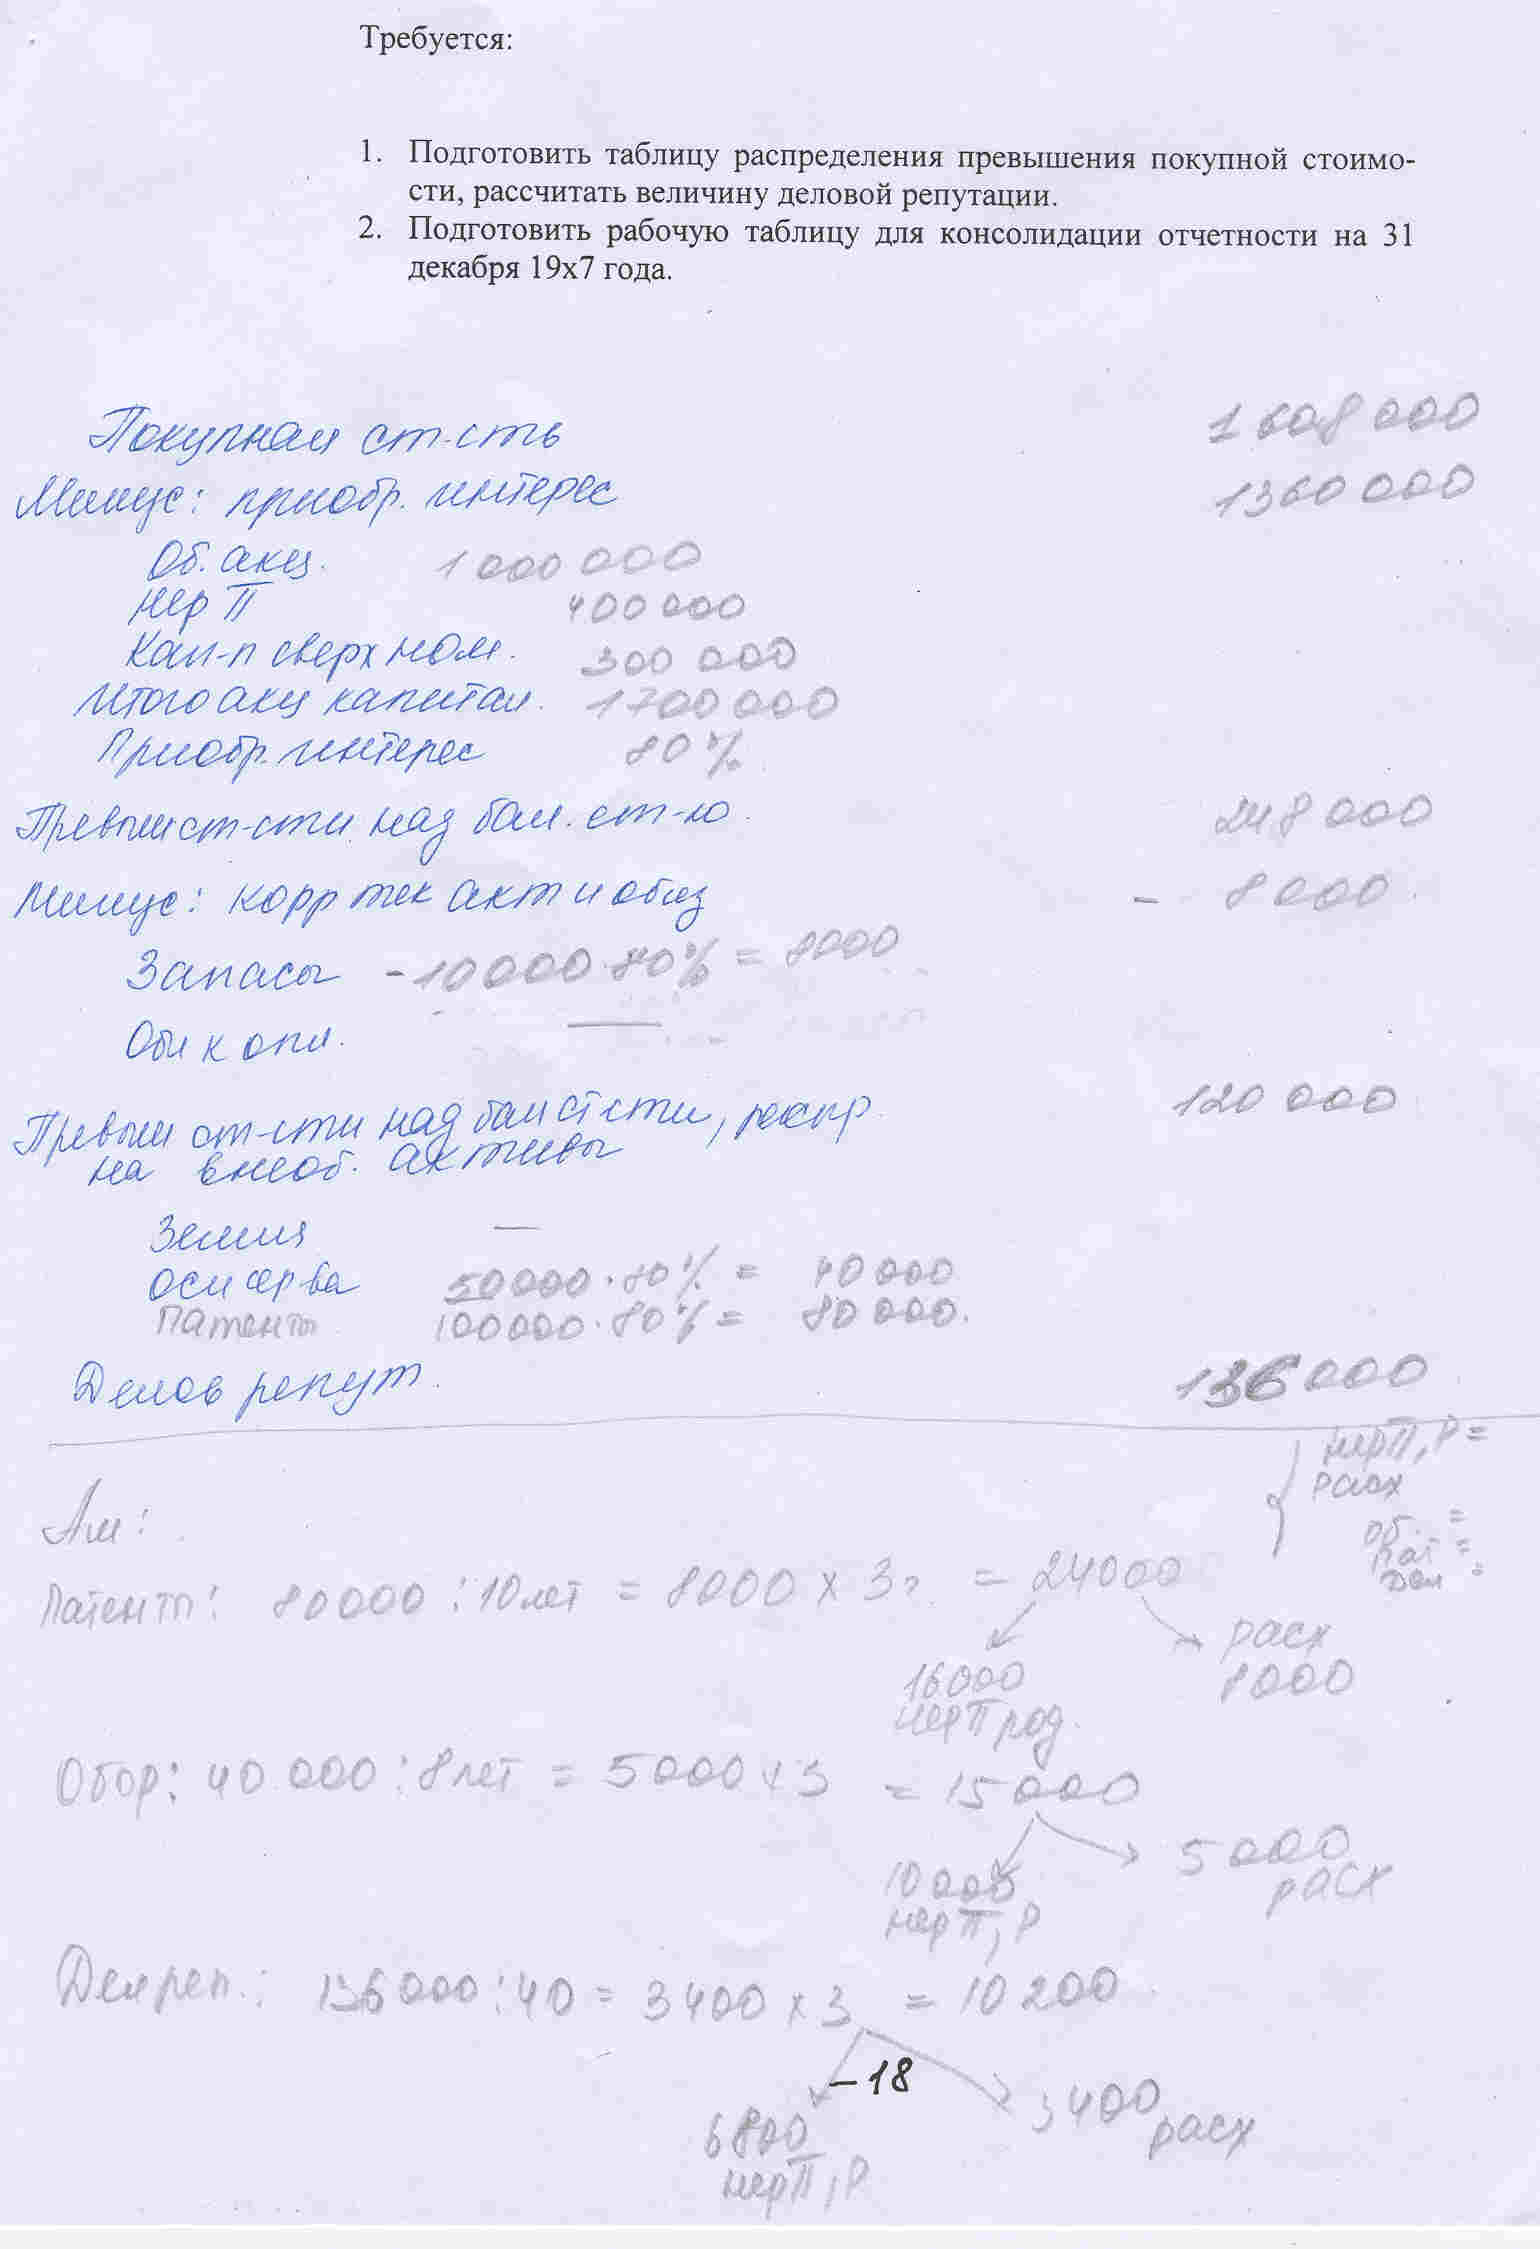 Требуется:
1. Подготовить таблицу распределения превышения покупной стоимо-
сти, рассчитать величину деловой репутации.
2. Подготовить рабочую таблицу для консолидации отчетности на 31
декабря 19х7 года.
Покупная ст-сть 1 608 000
Минус: приобр. интерес 1360 000
Об. акц. 1 000 000
нер П 400 000
Кап-л сверх ном. 300 000
Итого акц капитал. 1700 000
Приобр. интерес 80 %
Превыш ст-сти над бал. ст-ю. 248 000
Минус: корр тек акт и обяз - 8 000.
Запасы -10000·80% = 8000
Обя к опл. —
Превыш ст-сти над бал стсти, распр. 120 000
на внеоб. активы
Земля —
осн ср-ва 50000·80% = 40 000
Патенты 100000·80% = 80 000.
Делов репут. 136 000
нерП, Р =
расх
об. =
Пат =
Дел =
Ам:
Патенты: 80000 : 10 лет = 8000 х 3г = 24000
расх
16000 8000
нерП род.
Обор: 40 000 : 8 лет = 5000 х 3 = 15 000
5 000
10 000 расх
нерП, Р
Дел реп.: 136 000 : 40 = 3 400 х 3 = 10 200
-18
6 800 3 400 расх
нерП, Р